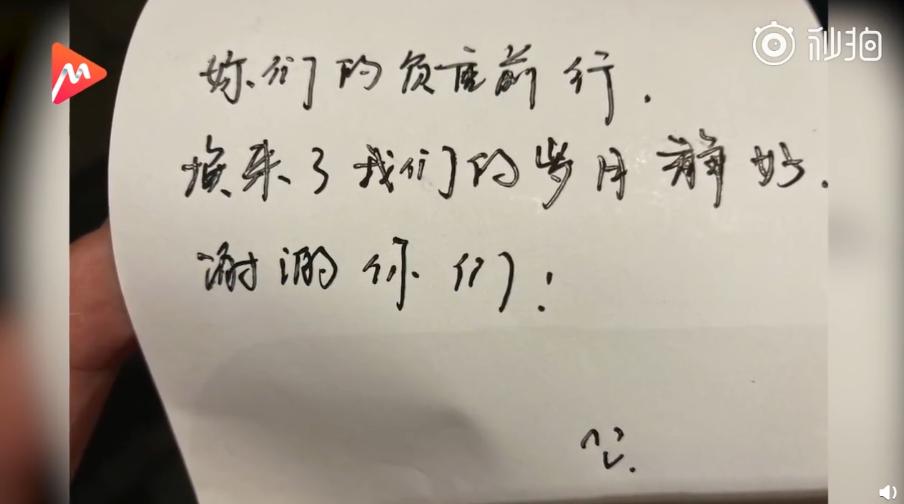 秒拍
妳们的负重前行.
换来了我们的岁月静好.
谢谢你们!